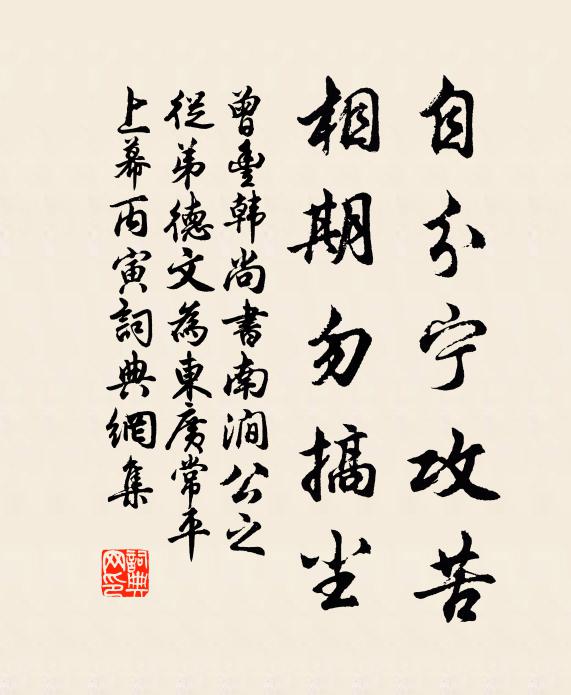 自分宁攻苦
相期勿搞尘
曾豊韩尚書南澗公之
從弟德文為東廣常平
上幕丙寅詞典網集
詞典网印